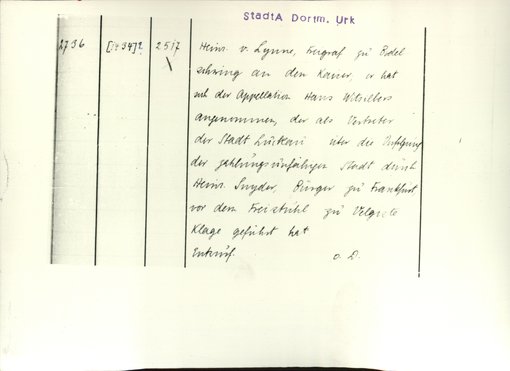 StadtA Dortm. Urk
2736 [1434]? 2517 Heinr. v. Lynne, Freigraf zu Bodel
schwing an den Kaiser, er hat
sich der Appellation Hans
angenommen, der als Vertreter
der Stadt Luckau über die
der zahlungsunfähigen Stadt durch
Heinr. Snyder, Bürger zu Frankfurt
vor dem Freistuhl zu
Klage geführt hat
Entwurf. o. D.